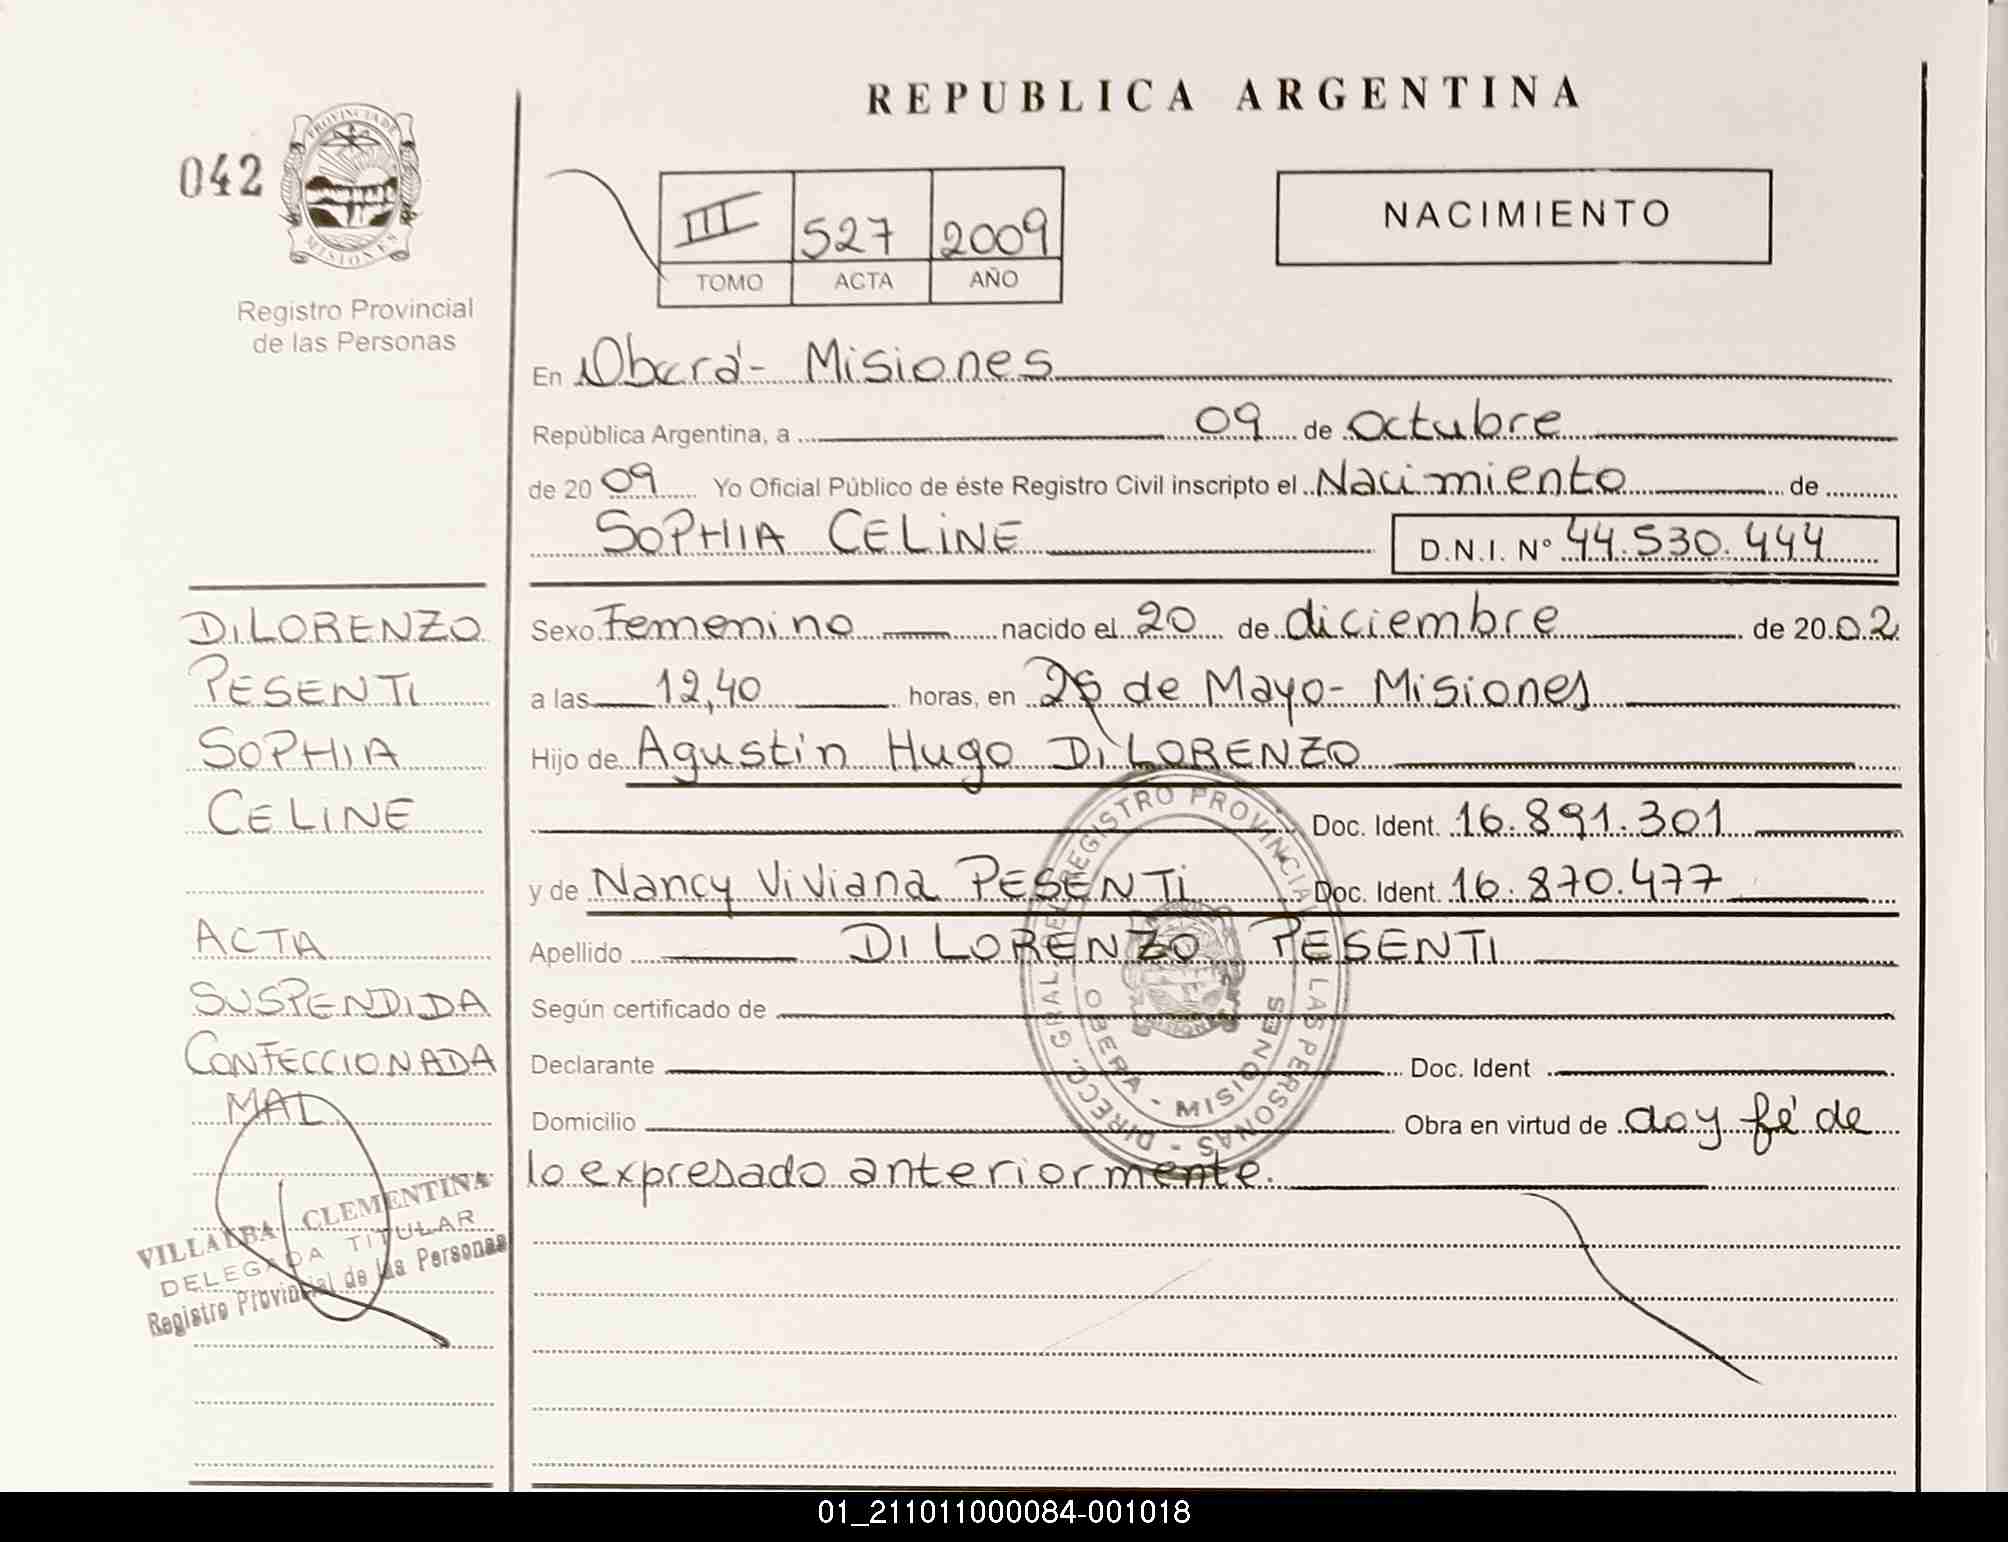 REPUBLICA ARGENTINA
042
PROVINCIA DE
MISIONES
Registro Provincial
de las Personas
III 527 2009
TOMO ACTA AÑO
NACIMIENTO
En Oberá - Misiones
República Argentina, a 09 de Octubre
de 20 09 Yo Oficial Público de éste Registro Civil inscripto el Nacimiento de
SOPHIA CELINE D.N.I. Nº 44.530.444
Sexo Femenino nacido el 20 de diciembre de 20 02
a las 12,40 horas, en 25 de Mayo - Misiones
Hijo de Agustin Hugo Di LORENZO
Doc. Ident. 16.891.301
y de Nancy Viviana PESENTI Doc. Ident. 16.870.477
Apellido DI LORENZO PESENTI
Según certificado de
Declarante Doc. Ident
Domicilio Obra en virtud de doy fé de
lo expresado anteriormente.
DI LORENZO
PESENTI
SOPHIA
CELINE
ACTA
SUSPENDIDA
CONFECCIONADA
MAL
VILLALBA CLEMENTINA
DELEGADA TITULAR
Registro Provincial de las Personas
DIRECC. GRAL DEL REGISTRO PROVINCIAL LAS PERSONAS -
OBERA - MISIONES
01_211011000084-001018